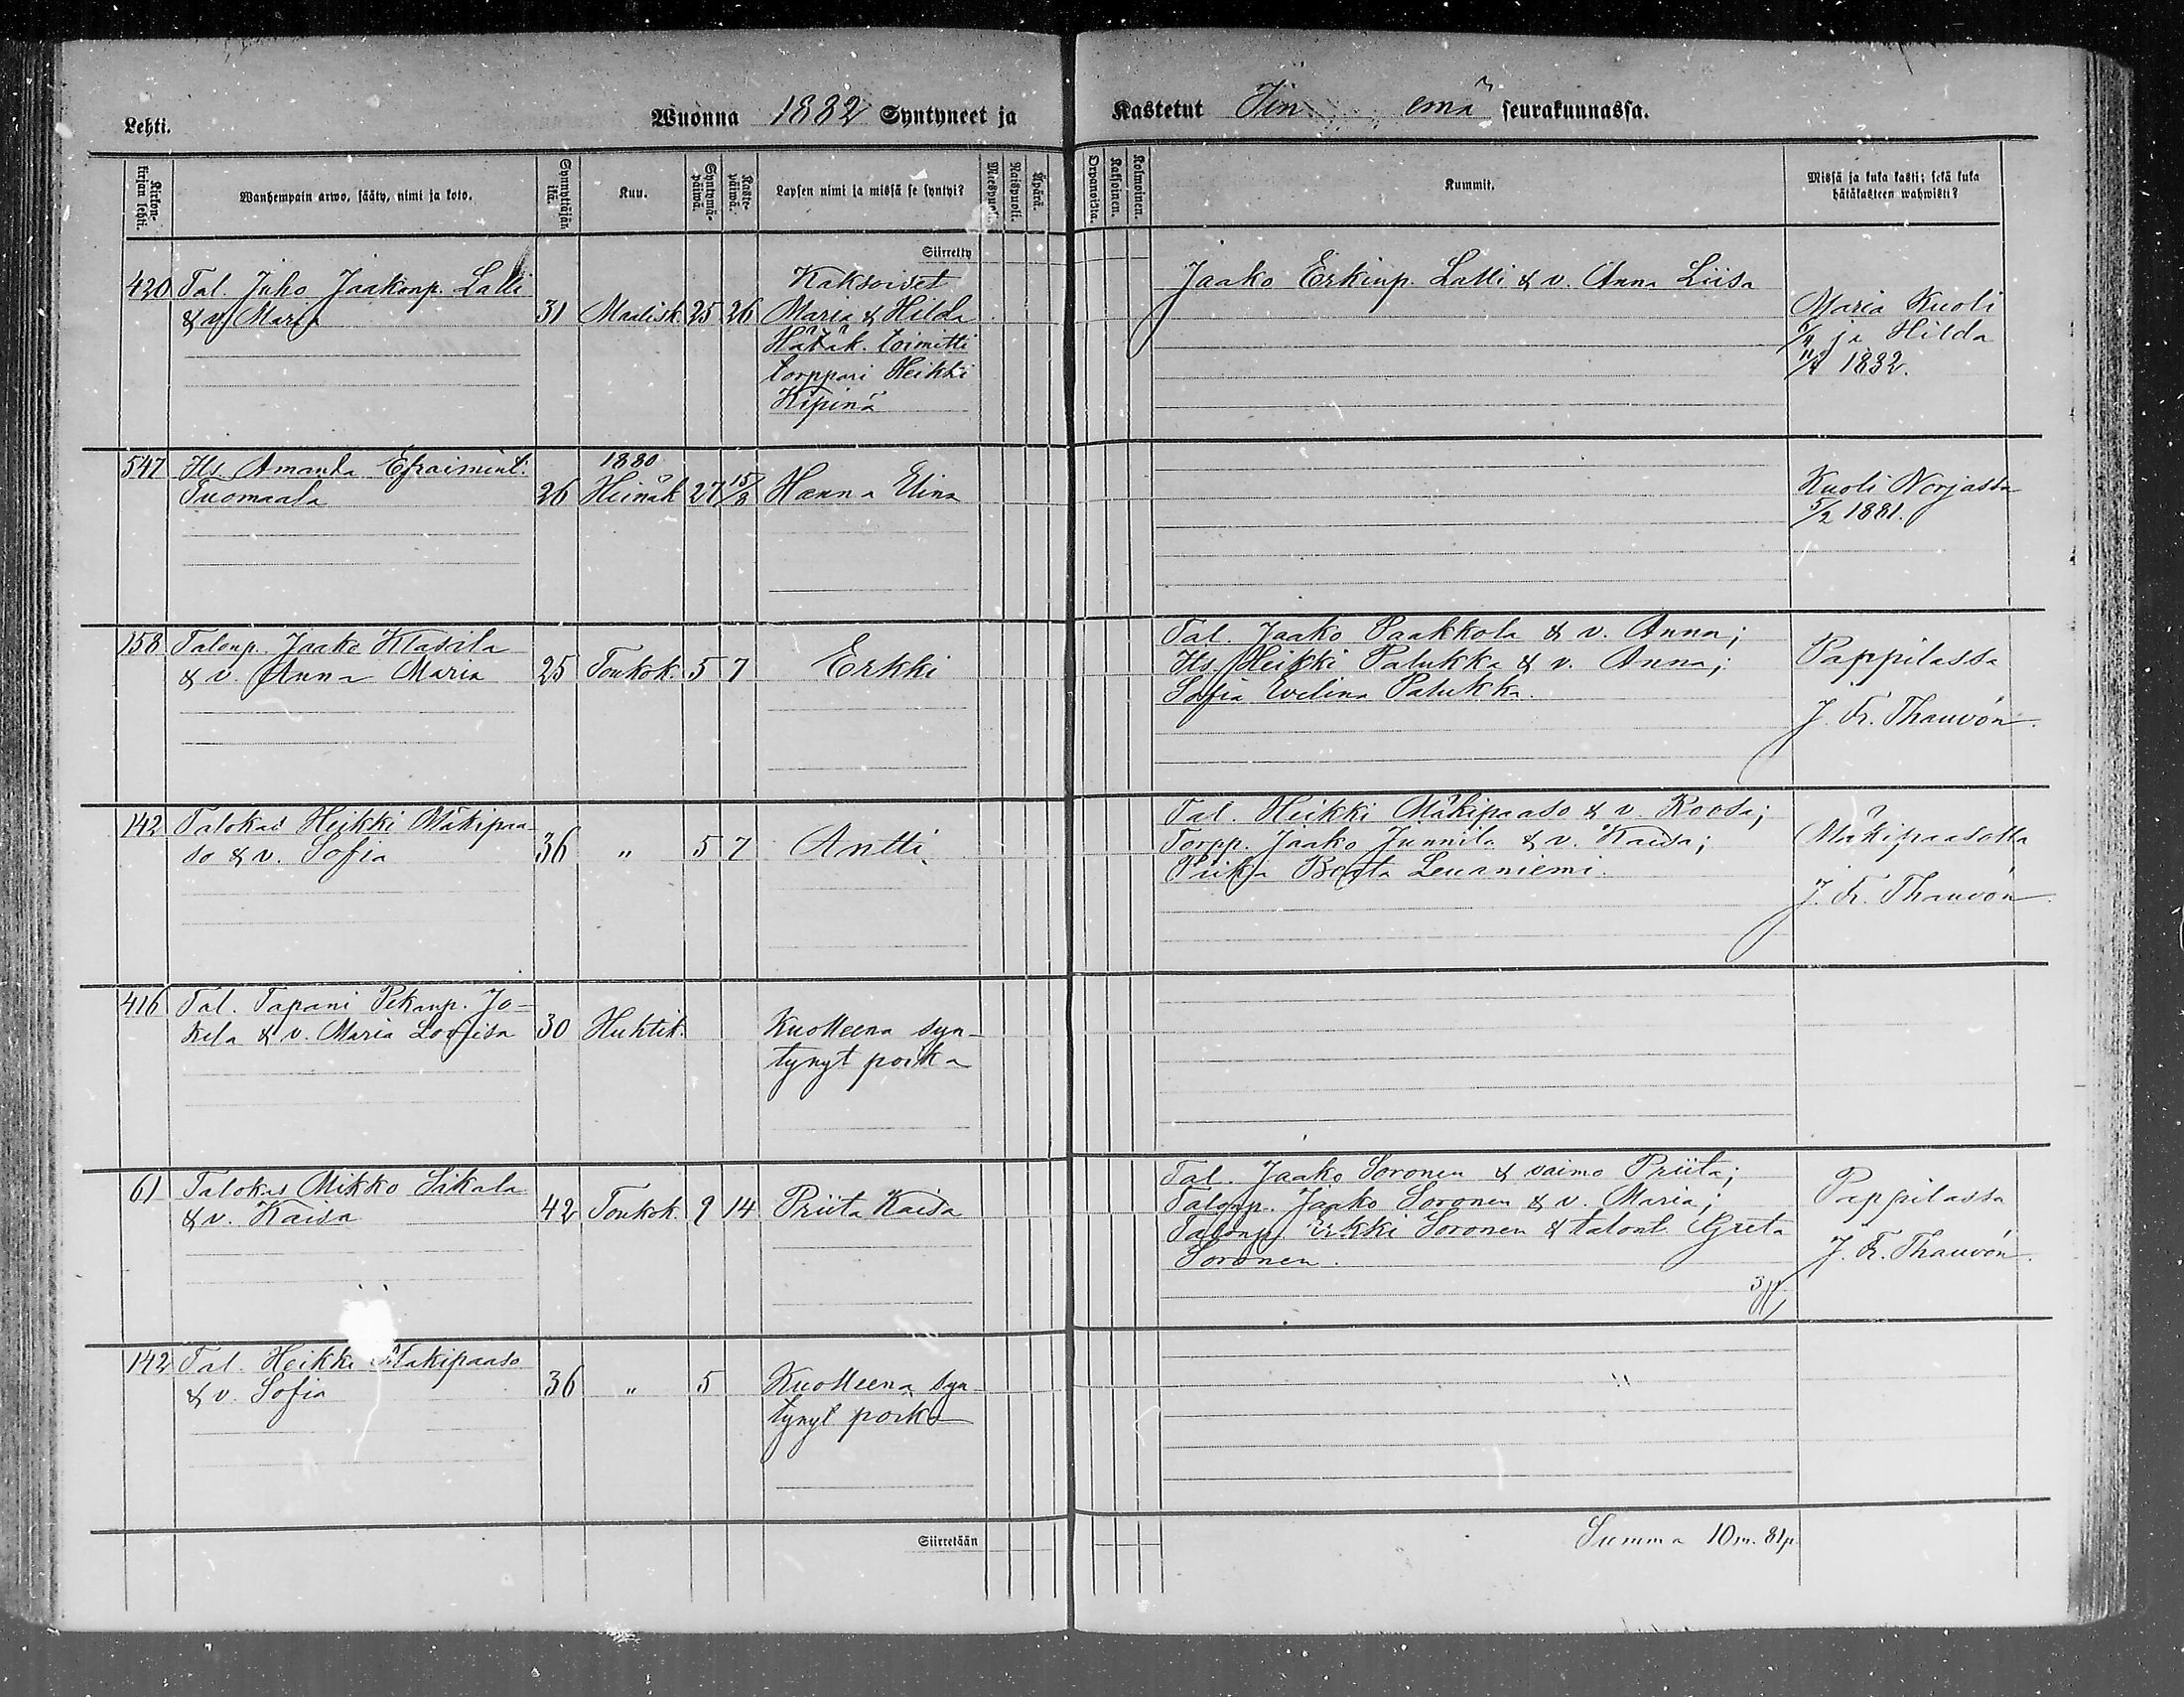 Lehti.
Wuonna 1882 Syntyneet ja
Kastetut Iin emä seurakunnassa.
Kirkon-kirjan lehti.
Wanhempain arwo, sääty, nimi ja koto.
Synnyttäjän ikä.
Kuu.
Syntymä-päivä.
Kaste-päivä.
Lapsen nimi ja missä se syntyi?
Miespuoli.
Naispuoli.
Äpärä.
Orpanoista.
Kaksoinen.
Kolmoinen.
Kummit.
Missä ja kuka kasti; sekä kuka
hätäkasteen wahwisti?
Siirretty
420 Tal. Juho Jaakonp. Lalli
& v. Maria 31 Maalisk. 25 26
Kaksoiset
Maria & Hilda
Hätäk. toimitti
torppari Heikki
Kipinä
Jaako Erkinp. Lalli & v. Anna Liisa
Maria Kuoli
6/4 ja Hilda
11/4 1882.
547 Its. Amanda Efraimint.
Tuomaala 26
1880
Heinäk 27 15/8 Hanna Elina
Kuoli Norjassa
5/2 1881.
158 Talonp. Jaako Klasila
& v. Anna Maria 25 Toukok. 5 7 Erkki
Tal. Jaako Paakkola & v. Anna;
Its. Heikki Palukka & v. Anna;
Sofia Evelina Palukka.
Pappilassa
J. Fr. Thauvón.
142 Talokas Heikki Mäkipaa-
so & v. Sofia 36 „ 5 7 Antti
Tal. Heikki Mäkipaaso & v. Roosa;
Torpp. Jaako Junnila & v. Kaisa;
Piika Beata Leuaniemi.
Mäkipaasolla
J. Fr. Thauvón.
416 Tal. Tapani Pekanp. Jo-
kela & v. Maria Lovisa 30 Huhtik.
Kuolleena syn-
tynyt poika
61 Talokas Mikko Sikala
& v. Kaisa 42 Toukok. 9 14 Priita Kaisa
Tal. Jaako Soronen & vaimo Priita;
Talonp. Jaako Soronen & v. Maria;
Talonp. Erkki Soronen & talont. Greta
Soronen.
Pappilassa
J. Fr. Thauvón.
142 Tal. Heikki Mäkipaaso
& v. Sofia 36 „ 5
Kuolleena syn-
tynyt poika
Siirretään
Summa 10 m. 81 p.